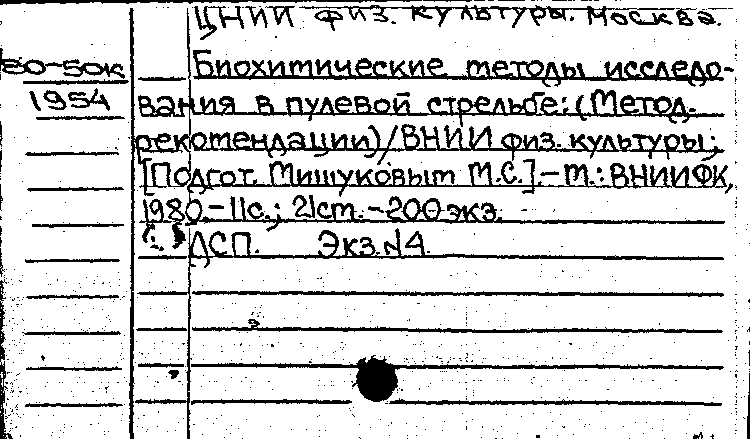 ЦНИИ физ. культуры. Москва.
80-50к
Биохимические методы исследо-
1954
вания в пулевой стрельбе: (Метод.
рекомендации)/ВНИИ физ. культуры;
[Подгот. Мишуковым М.С.].-М.: ВНИИФК,
1980.-11с.; 21см.-200экз.
ДСП. Экз.№4.